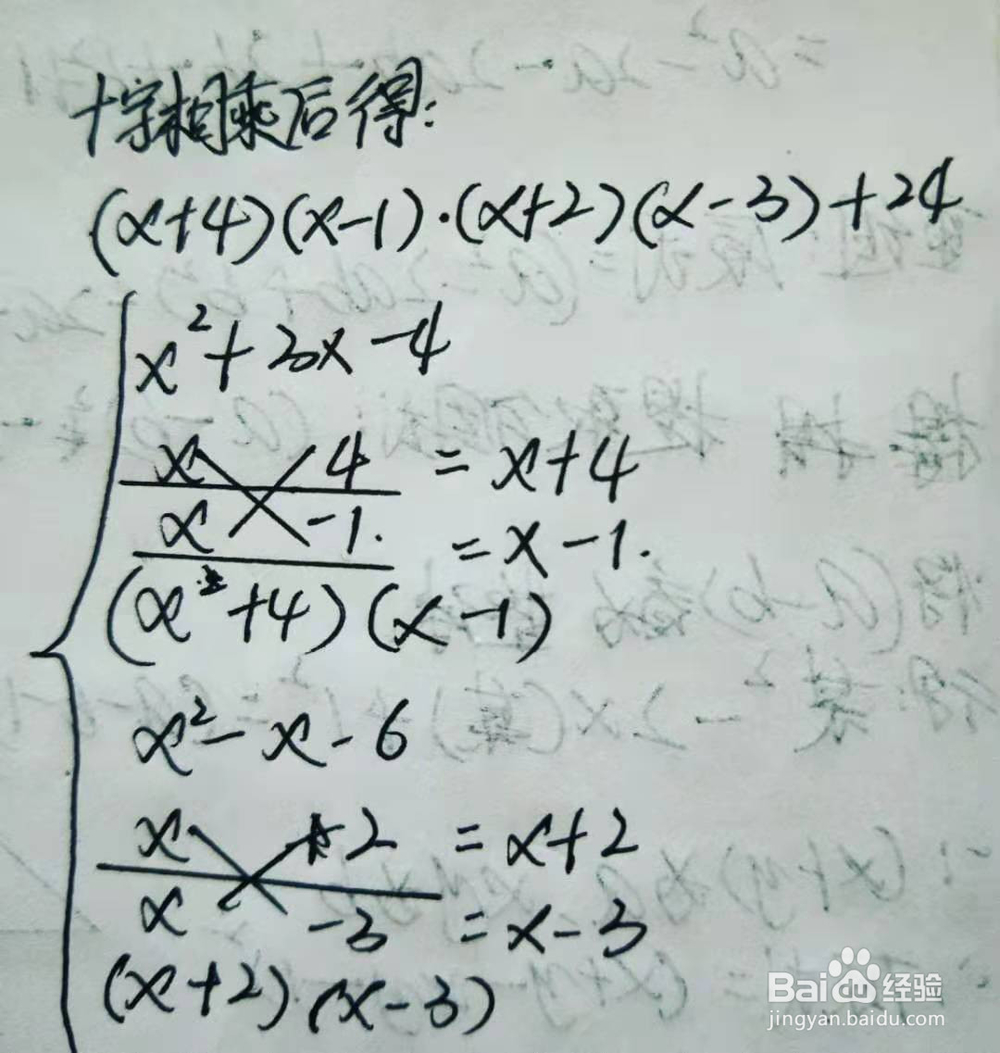 十字相乘后得:
(x+4)(x-1)·(x+2)(x-3)+24
x²+3x-4
x 4 = x+4
x -1. = x-1.
(x²+4)(x-1)
x²-x-6
x +2 = x+2
x -3 = x-3
(x+2)·(x-3)
Baidu经验
jingyan.baidu.com